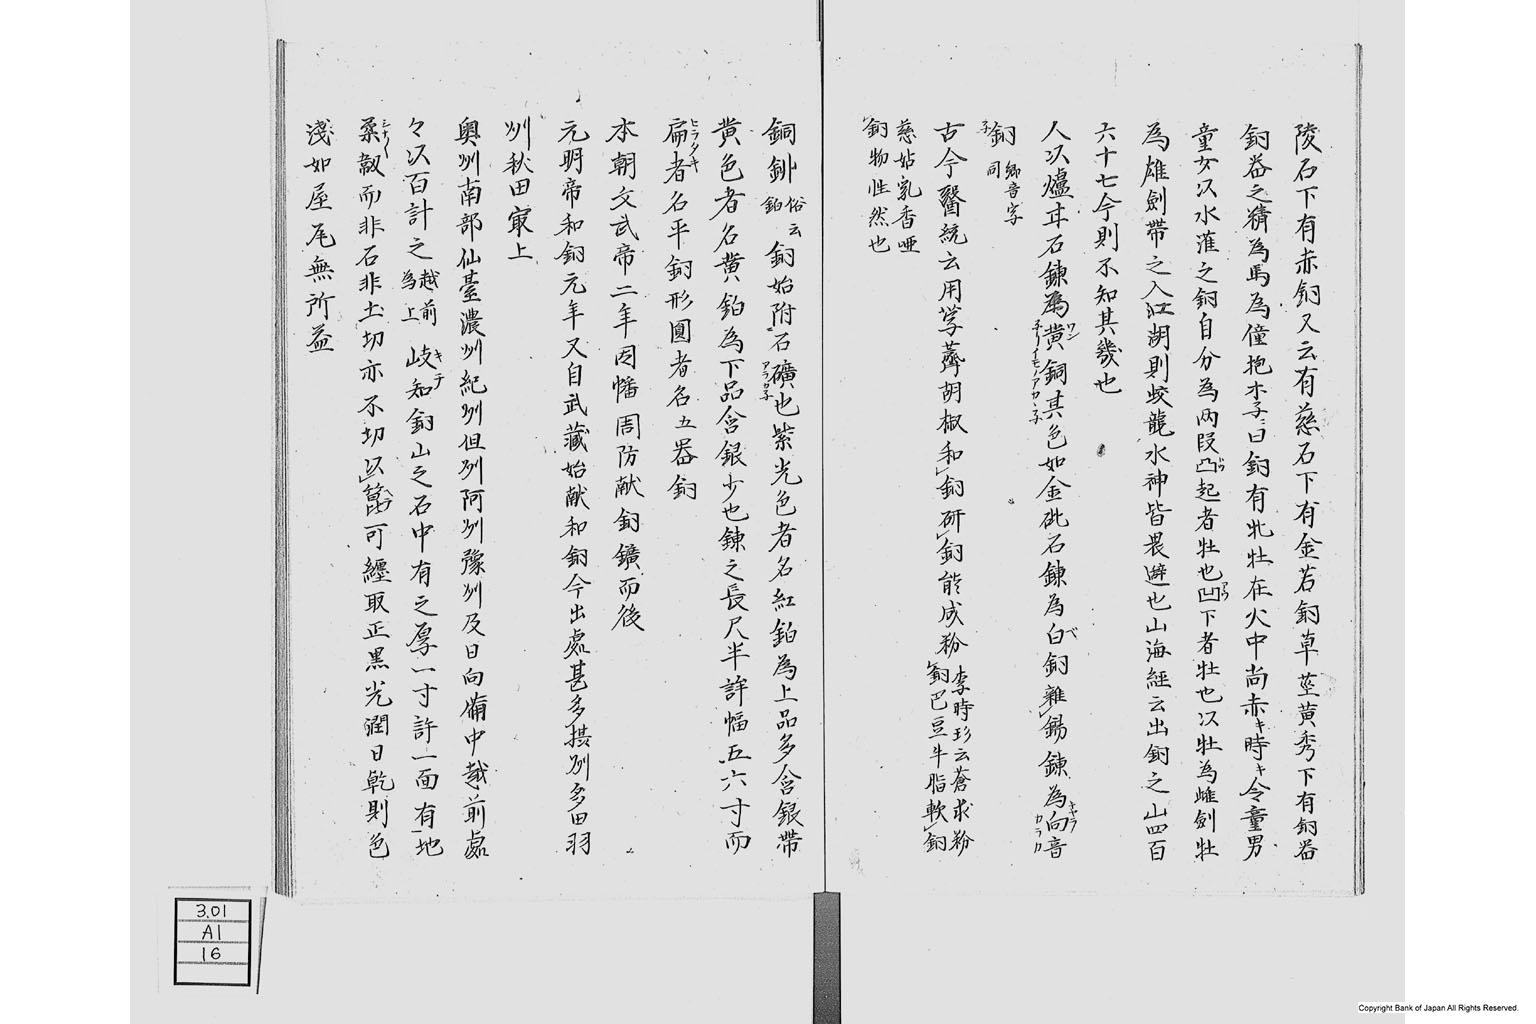 陵石下有赤銅又云有慈石下有金若銅草莖黄秀下有銅器
銅器之精為馬為僮抱木子曰銅有牝牡在火中尚赤キ時キ令童男
童女以水灌之銅自分為两段凸起者牡也凹下者牡也以牡為雌劍牡
為雄劍帶之入江湖則蛟龍水神皆畏避也山海經云出銅之山四百
六十七今則不知其幾也
人以爐耳石錬為黄銅其色如金砒石錬為白銅雜錫錬為向音
銅 郷音字同
古今醫統云用荸薺胡椒和銅研銅能成粉 李時珍云蒼求粉銅巴豆牛脂軟銅
慈姑乳香啞
銅物性然也
銅釽 俗云鉑 銅始附石礦也紫光色者名紅鉑為上品多含銀帶
黄色者名黄鉑為下品含銀少也錬之長尺半許幅五六寸而
扁者名平銅形圓者名五器銅
本朝文武帝二年因幡周防献銅鑛而後
元明帝和銅元年又自武藏始献和銅今出處甚多摂州多田羽
州秋田㝡上
奥州南部仙臺濃州紀州但州阿州豫州及日向備中越前處
々以百計之 越前為上 岐知銅山之石中有之厚一寸許一面有地
柔靱而非石非土切亦不切以箆可纏取正黒光潤日乾則色
淺如屋尾無所益
3.01
A1
16
Copyright Bank of Japan All Rights Reserved.